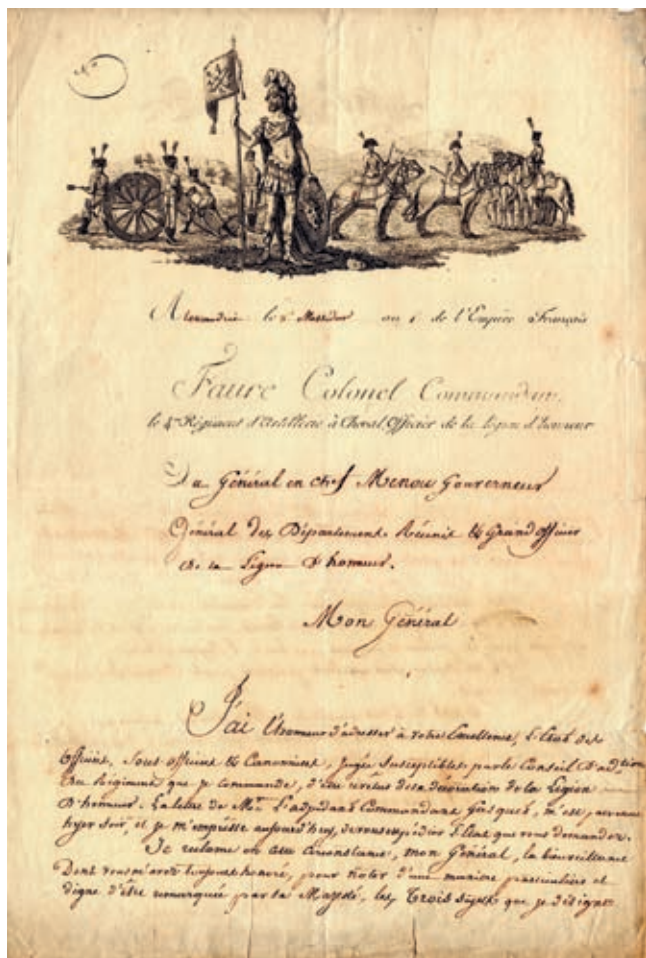 Alexandrie le 2 Messidor an 1 de l'Empire Français
Faure Colonel Commandant
le 4me Régiment d'Artillerie à Cheval Officier de la légion d'honneur
Au Général en chef Menou Gouverneur
Général des Départements Réunis & Grand officier
de la Légion D'honneur.
Mon Général
J'ai l'honneur d'adresser à votre Excellence, L'Etat des
officiers, sous officiers & Canonniers, jugés susceptibles par le Conseil D'adtion
du Régiment que je commande, d'être revêtus de la décoration de la Légion
D'honneur. La lettre de Mr L'adjudant Commandant m'est parvenue
hyer soir, et je m'empresse aujourd'huy, de vous expédier L'Etat que vous demandez.
Je réclame en cette circonstance, mon Général, la bienveillance
Dont vous m'avez toujours honoré, pour noter d'une manière particulière et
digne d'être remarquée par sa Majesté, les Trois sujets que je désigne